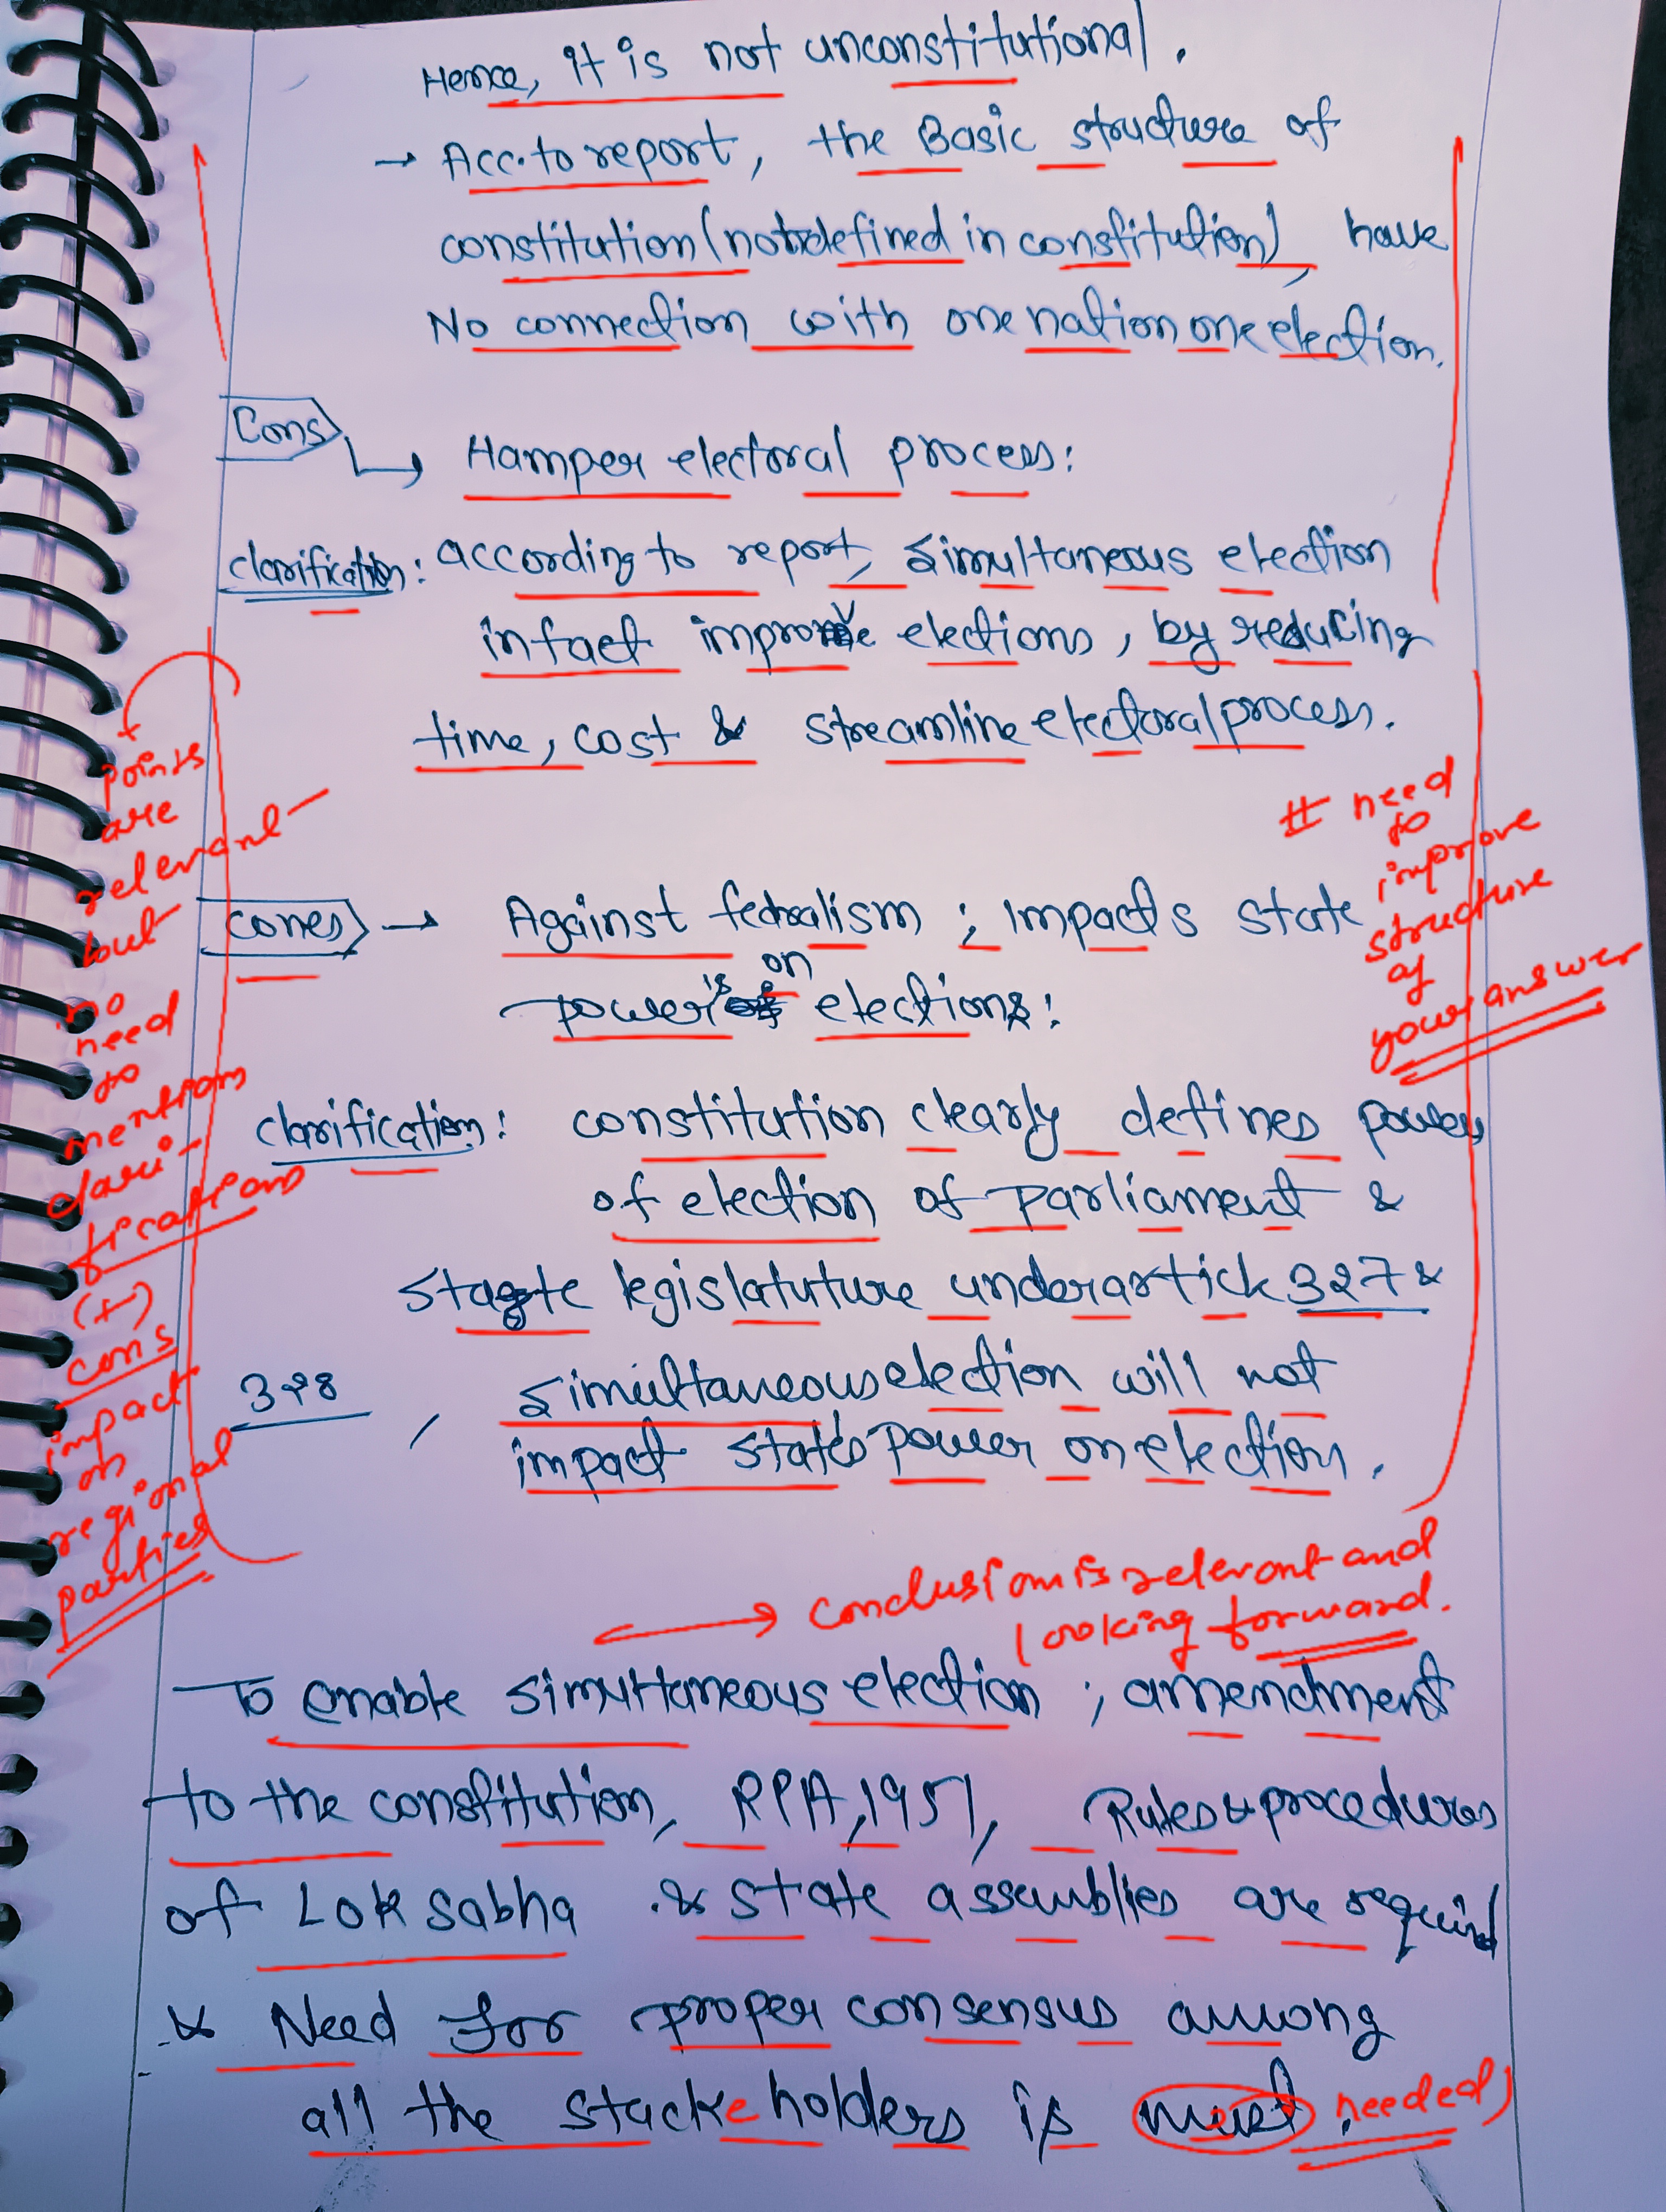 Hence, it is not unconstitutional.
→ Acc. to report, the Basic structure of
constitution (not defined in constitution), have
No connection with one nation one election.
Cons
↳ Hamper electoral process:
clarification: according to report, simultaneous election
infact improve elections, by reducing
time, cost & streamline electoral process.
points
are
relevant
but
no
need
to
mention
clari-
fications
(+)
cons
impact
on
regional
parties
# need
to
improve
structure
of
your answer
cones → Against federalism ; impacts state
power's on elections:
clarification: constitution clearly defines power
of election of Parliament &
state legislatuture under artick 327 &
328, simultaneous election will not
impact state's power on election.
→ conclusion is relevant and
looking forward.
To enable simultaneous election ; amendment
to the constitution, RPA, 1951, Rules & procedures
of Lok sabha & state assemblies are required
& Need for proper consensus among
all the stackeholders is must. needed)